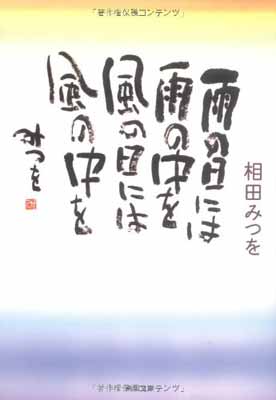 「著作権保護コンテンツ」
雨の日には
雨の中を
風の日には
風の中を
みつを
相田みつを
「著作権保護コンテンツ」